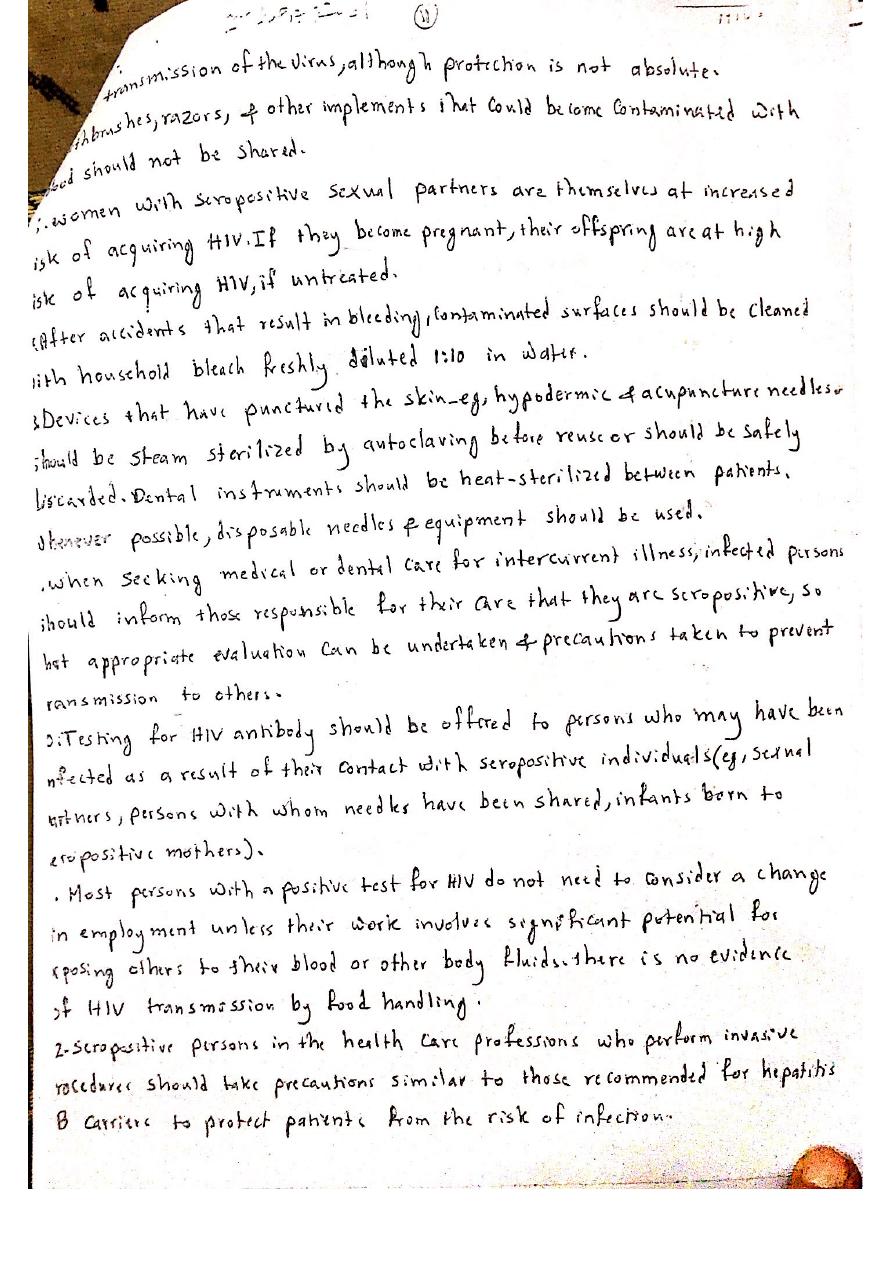 transmission of the virus, although protection is not absolute.
thbrushes, razors, & other implements that could become contaminated with
should not be shared.
women with seropositive sexual partners are themselves at increased
isk of acquiring HIV. If they become pregnant, their offspring are at high
isk of acquiring HIV, if untreated.
After accidents that result in bleeding, contaminated surfaces should be cleaned
ith household bleach freshly diluted 1:10 in water.
Devices that have punctured the skin_eg, hypodermic & acupuncture needles.
should be steam sterilized by autoclaving before reuse or should be safely
iscarded. Dental instruments should be heat-sterilized between patients.
whenever possible, disposable needles & equipment should be used.
.when seeking medical or dental care for intercurrent illness, infected persons
should inform those responsible for their care that they are seropositive, so
hat appropriate evaluation can be undertaken & precautions taken to prevent
ransmission to others.
Testing for HIV antibody should be offered to persons who may have been
nfected as a result of their contact with seropositive individuals (eg, sexual
artners, persons with whom needles have been shared, infants born to
eropositive mothers).
. Most persons with a positive test for HIV do not need to consider a change
in employment unless their work involves significant potential for
xposing others to their blood or other body fluids. there is no evidence
of HIV transmission by food handling.
2-Seropositive persons in the health care professions who perform invasive
rocedures should take precautions similar to those recommended for hepatitis
B carriers to protect patients from the risk of infection.